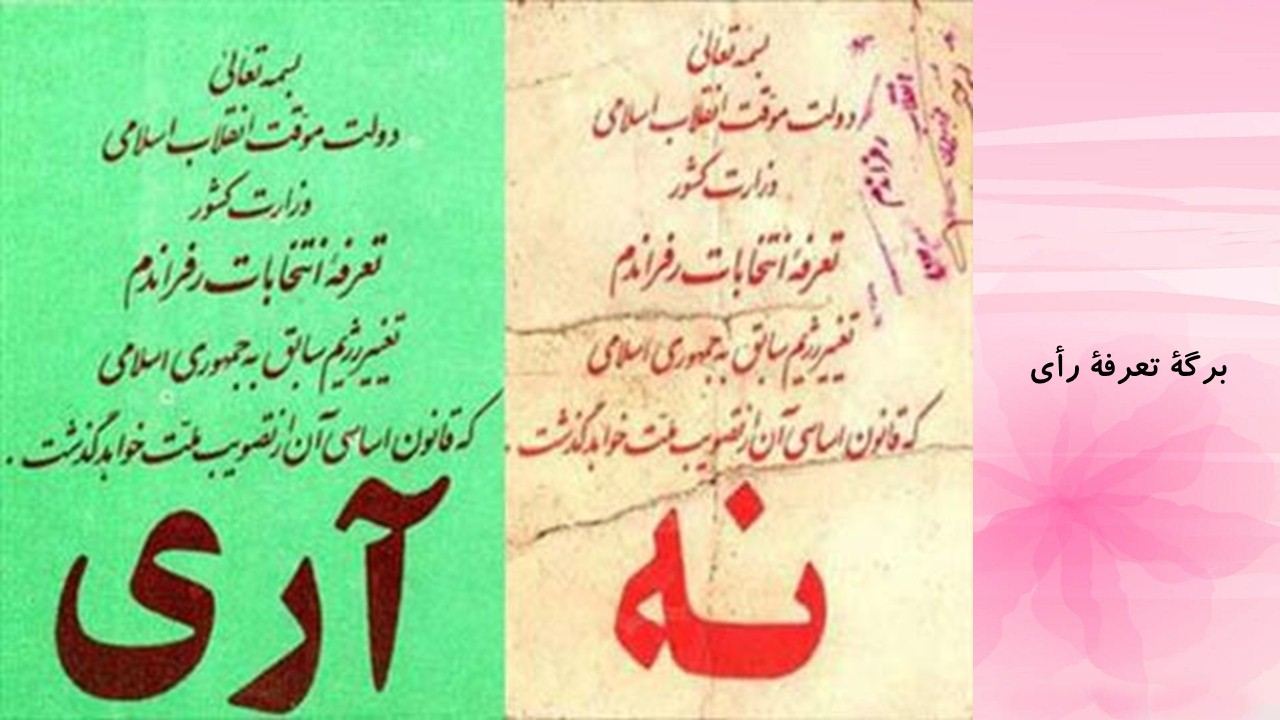 بسمه تعالی
دولت موقت انقلاب اسلامی
وزارت کشور
تعرفهٔ انتخابات رفراندم
تغییر رژیم سابق به جمهوری اسلامی
که قانون اساسی آن از تصویب ملّت خواهد گذشت .
آری
بسمه تعالی
دولت موقت انقلاب اسلامی
وزارت کشور
تعرفهٔ انتخابات رفراندم
تغییر رژیم سابق به جمهوری اسلامی
که قانون اساسی آن از تصویب ملّت خواهد گذشت .
نه
رفراندم
برگهٔ تعرفهٔ رأی